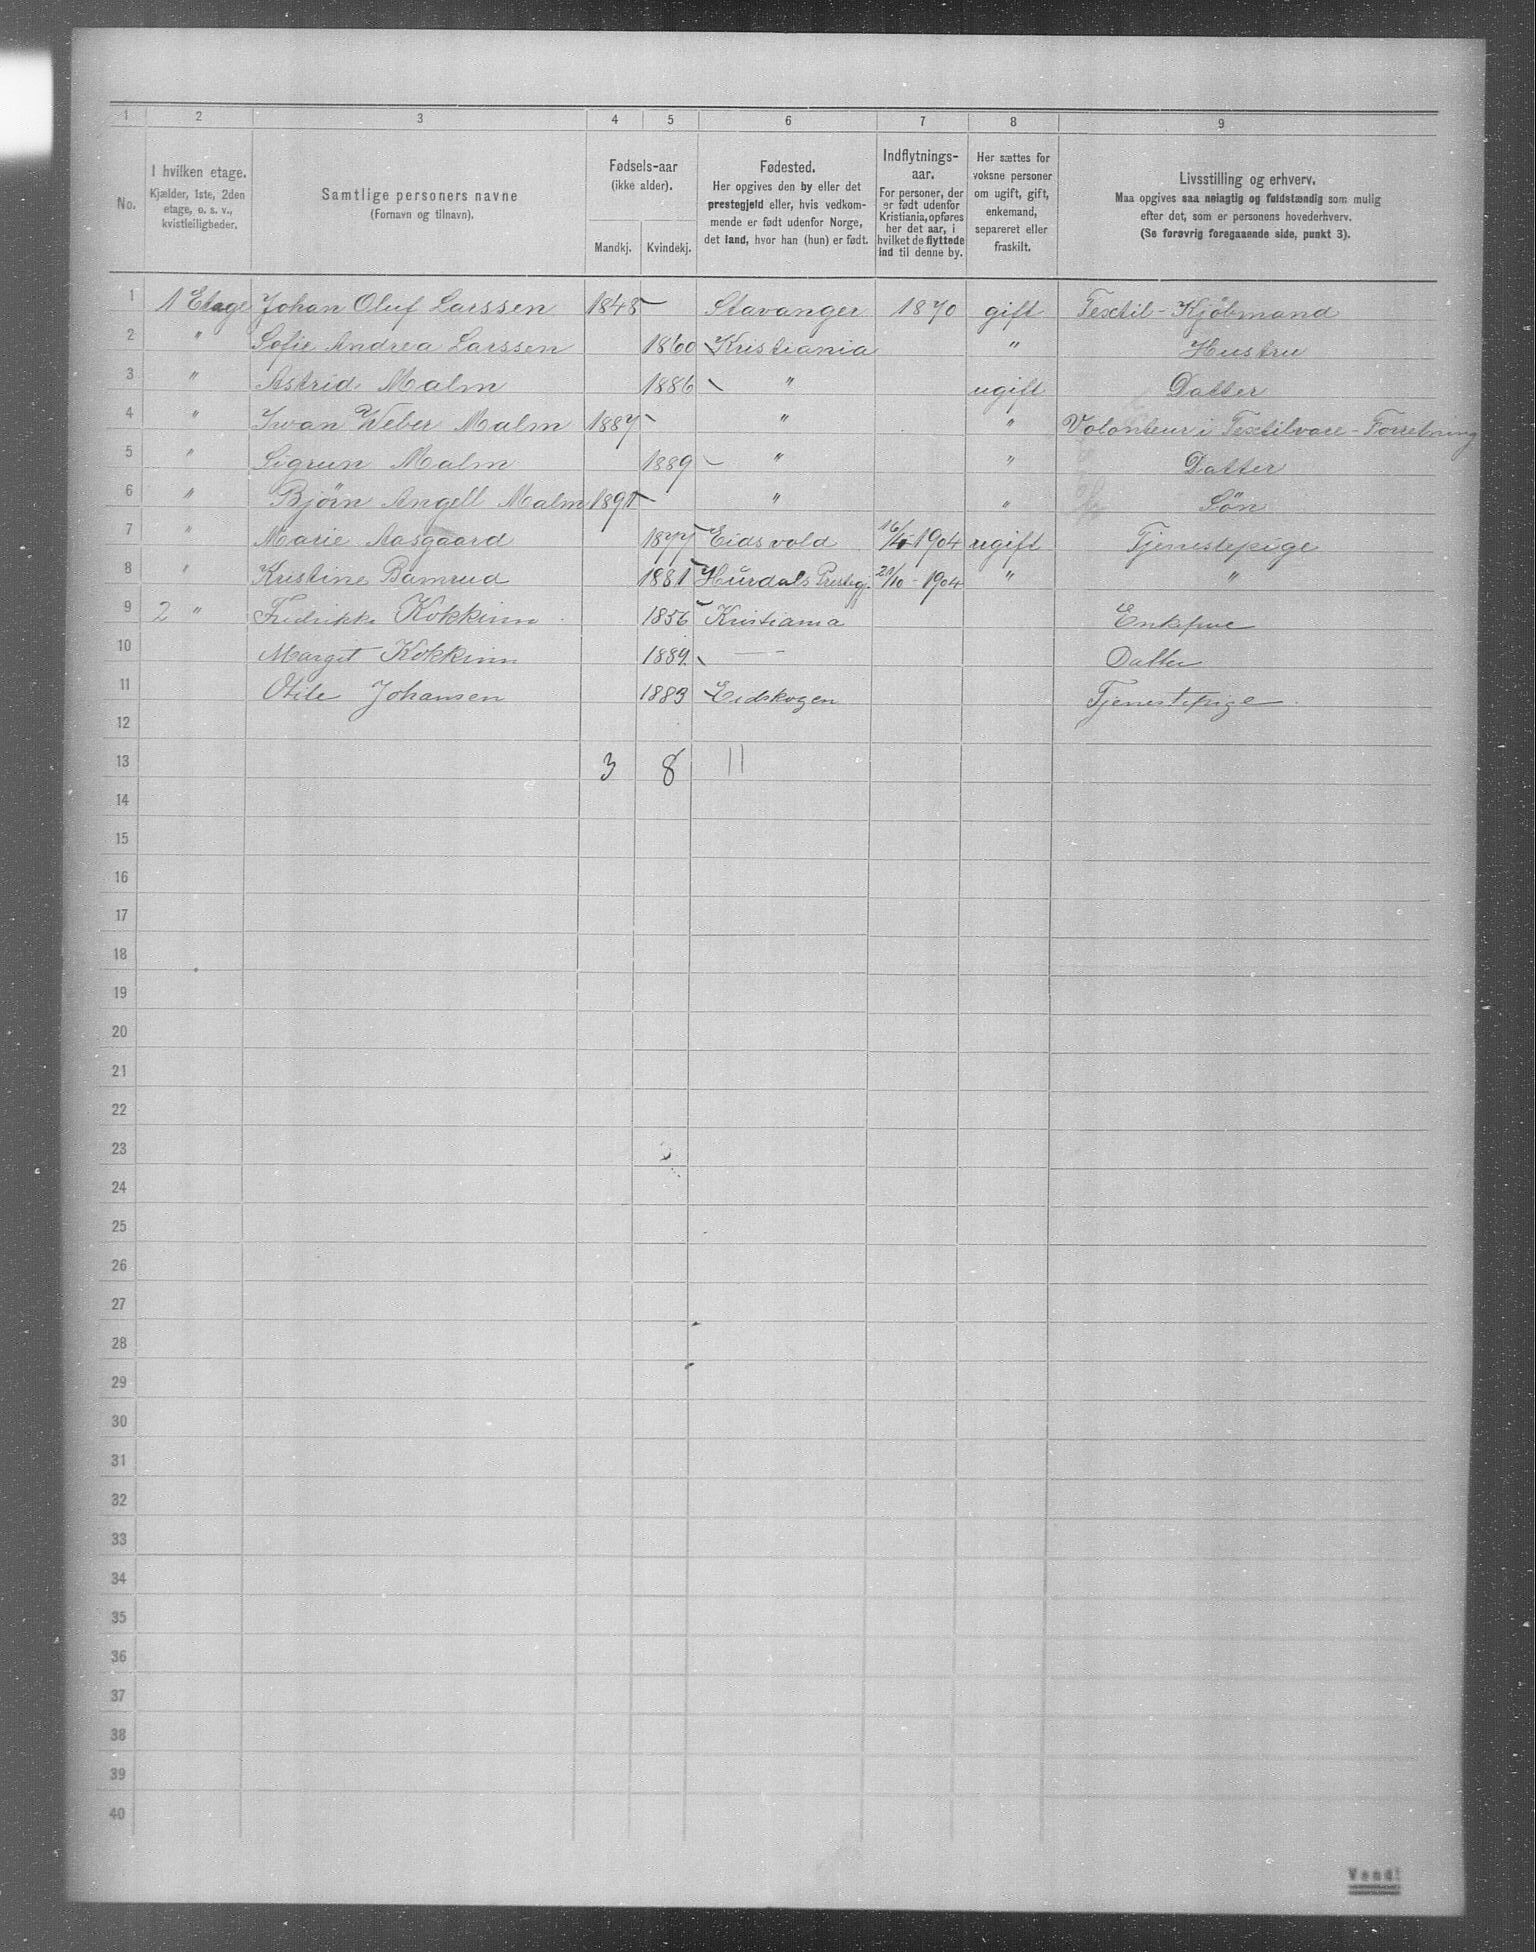 1 2 3 4 5 6 7 8 9
No.
I hvilken etage.
Kjælder, 1ste, 2den
etage, o. s. v.,
kvistleiligheder.
Samtlige personers navne
(Fornavn og tilnavn).
Fødsels-aar
(ikke alder).
Mandkj. Kvindekj.
Fødested.
Her opgives den by eller det
prestegjeld eller, hvis vedkom-
mende er født udenfor Norge,
det land, hvor han (hun) er født.
Indflytnings-
aar.
For personer, der
er født udenfor
Kristiania, opføres
her det aar, i
hvilket de flyttede
ind til denne by.
Her sættes for
voksne personer
om ugift, gift,
enkemand,
separeret eller
fraskilt.
Livsstilling og erhverv.
Maa opgives saa nøiagtig og fuldstændig som mulig
efter det, som er personens hovederhverv.
(Se forøvrig foregaaende side, punkt 3).
1 1 Etage Johan Oluf Larssen 1848 Stavanger 1870 gift Textil-Kjøbmand
2 " Sofie Andrea Larssen 1860 Kristiania " Hustru
3 " Astrid Malm 1886 " ugift Datter
4 " Iwan Weber Malm 1887 " " Volonteur i Textilvare-Forretning
5 " Sigrun Malm 1889 " " Datter
6 " Bjørn Angell Malm 1891 " " Søn
7 " Marie Aasgaard 1877 Eidsvold 16/4 1904 ugift Tjenestepige
8 " Kristine Bamrud 1881 Hurdals Presteg. 21/10 - 1904 " "
9 2 " Fredrikke Kokkinn 1856 Kristiania Enkefrue
10 Margit Kokkinn 1889 — - Datter
11 Otile Johansen 1883 Eidskogen Tjenestepige
12
13 3 8 11
14
15
16
17
18
19
20
21
22
23
24
25
26
27
28
29
30
31
32
33
34
35
36
37
38
39
40
Vend!